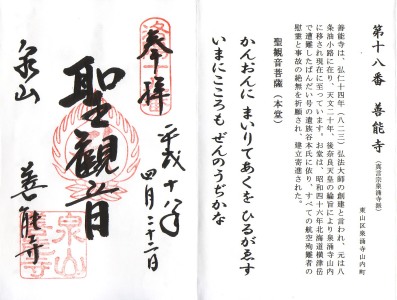 第十八番 善能寺(真言宗泉涌寺派)
東山区泉涌寺山内町
善能寺は、弘仁十四年(八二三)弘法大師の創建と言われ、元は八
条油小路に在り、天文二十年、後奈良天皇の綸旨により泉涌寺山内
に移され現在に至っています。お堂は、昭和四十六年北海道横津岳
で遭難したばんだい号の遺族谷本氏に依り、すべての航空殉難者の
慰霊と事故の絶無を祈願され、建立寄進された。
聖観音菩薩(本堂)
かんおんに まいりてあくを ひるがゑす
いまにこころも ぜんのうぢかな
奉拝
平成十八年
四月二十二日
聖観音
泉山
善能寺
泉山
善能寺